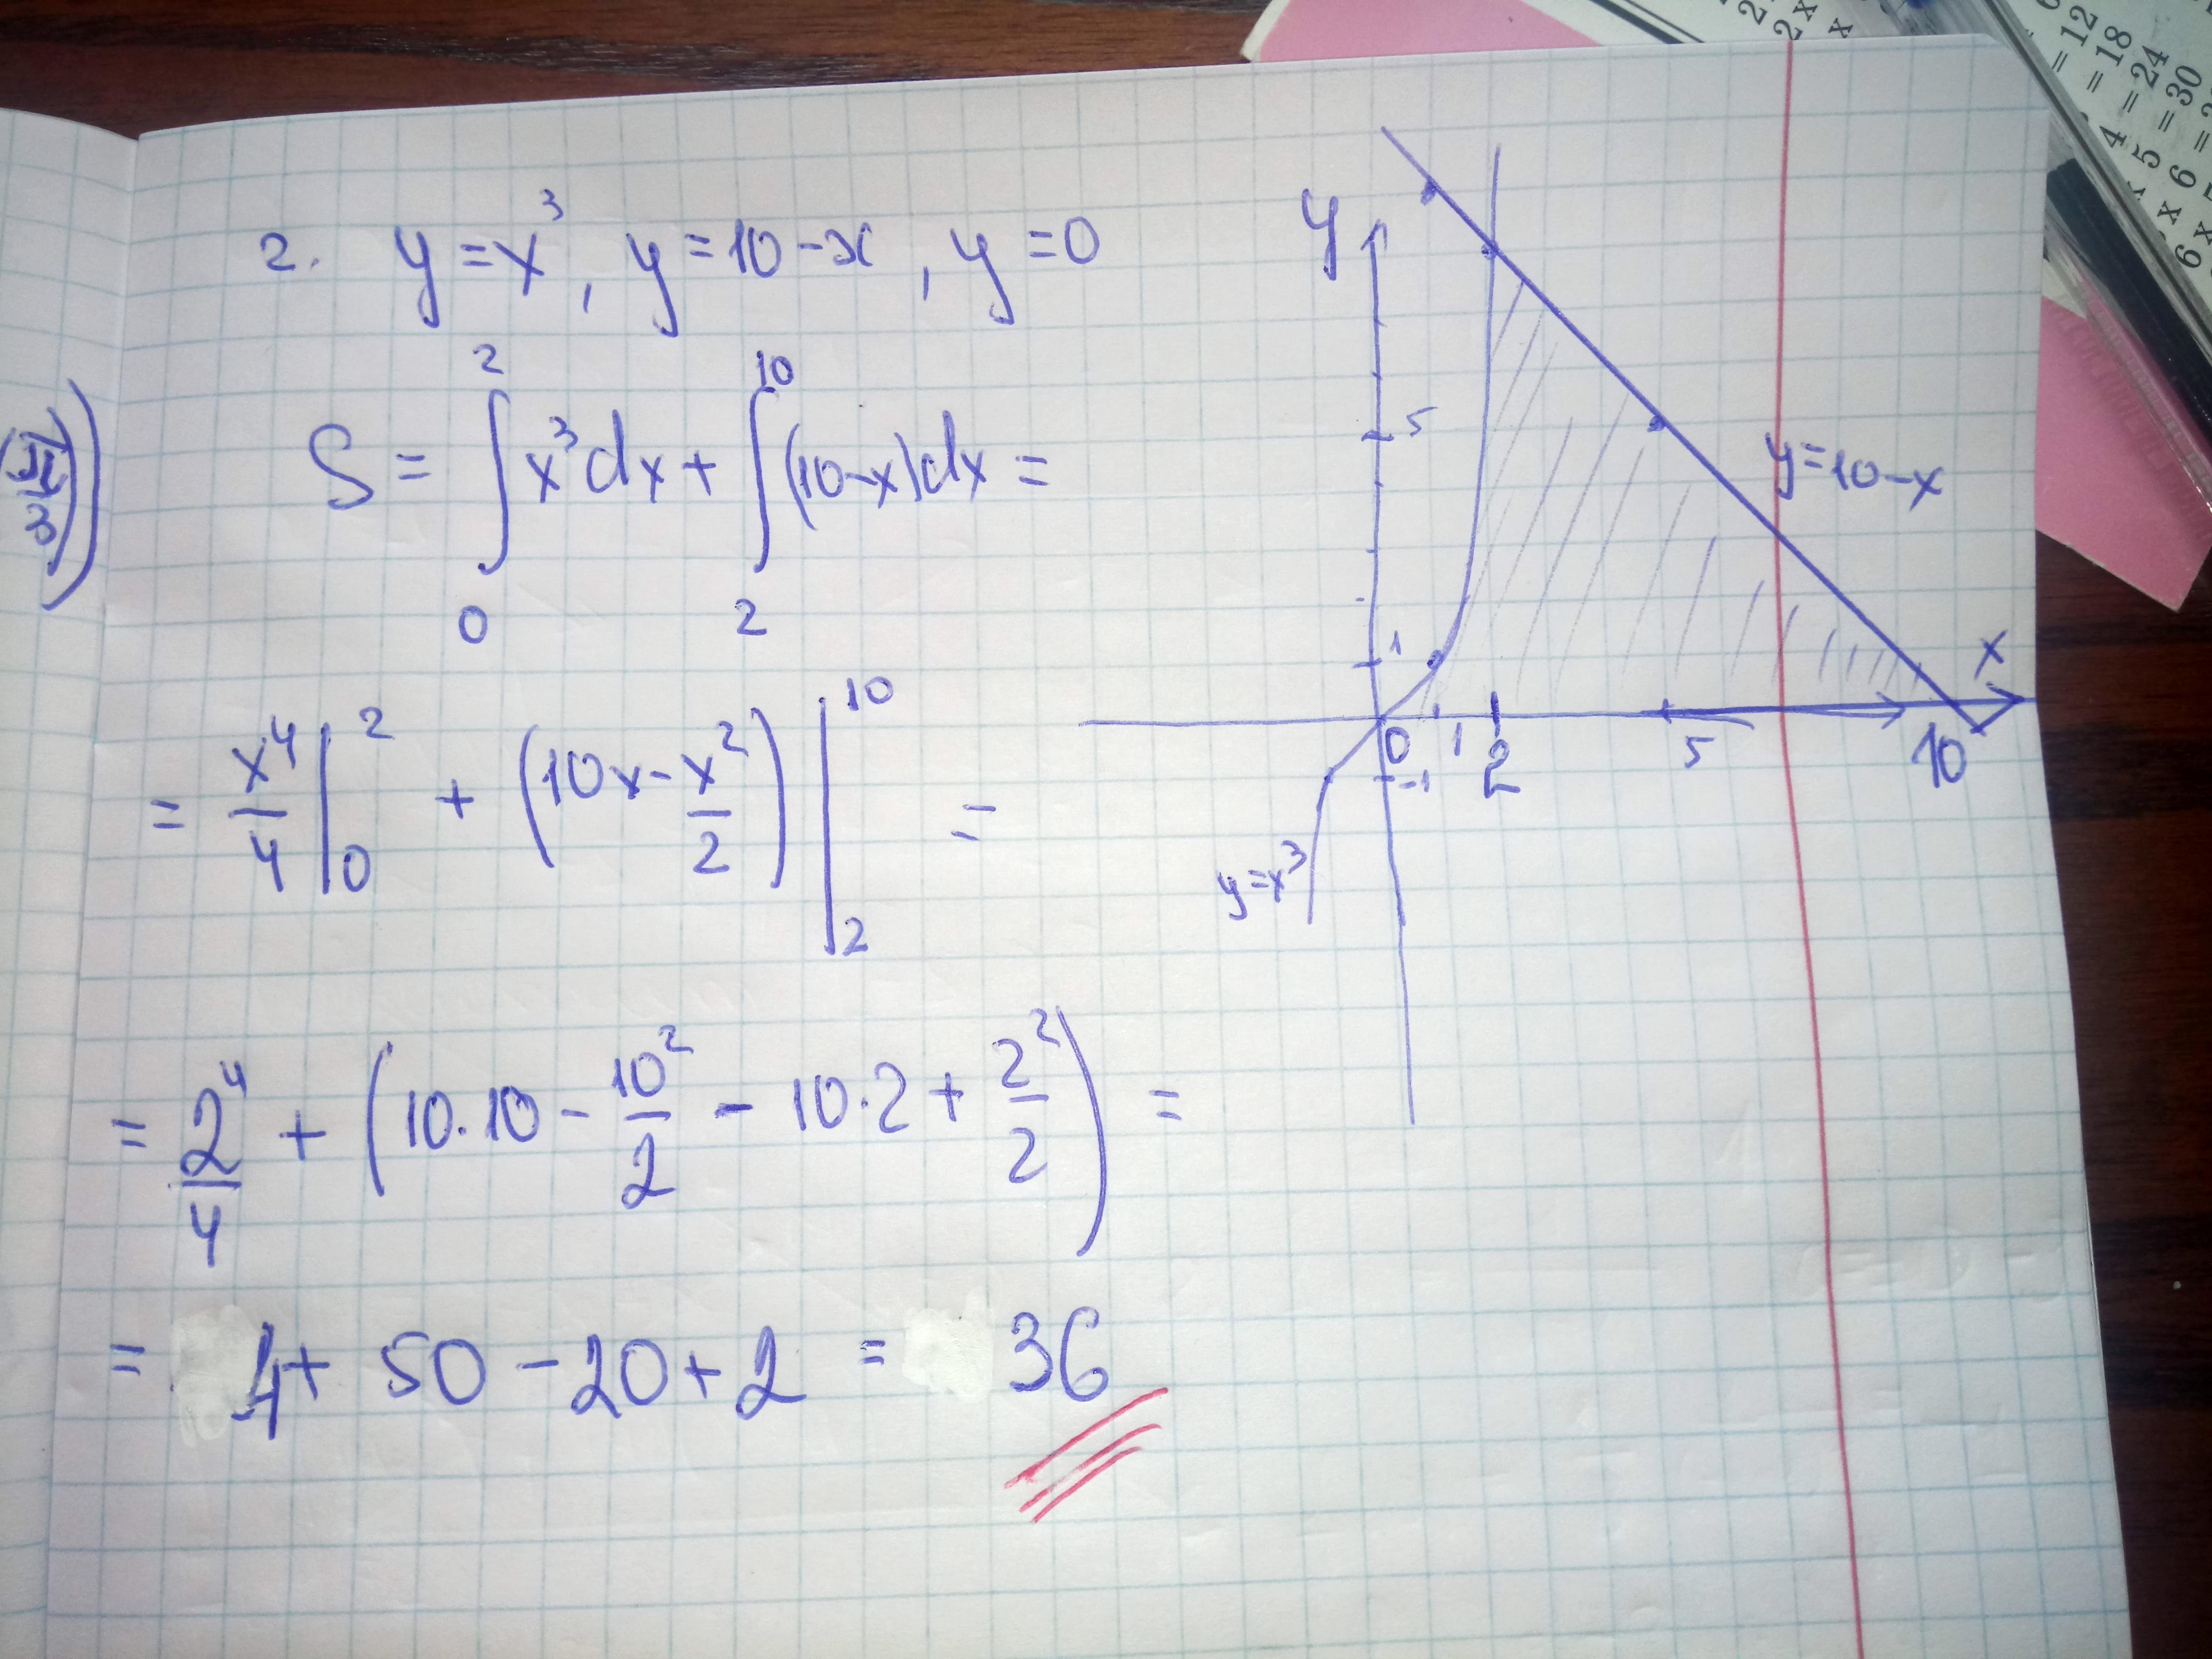 2. y = x³, y = 10 - x, y = 0
S = ∫₀² x³dx + ∫₂¹⁰ (10-x)dx =
= x⁴/4 |₀² + (10x - x²/2) |₂¹⁰ =
= 2⁴/4 + (10·10 - 10²/2 - 10·2 + 2²/2) =
= 4 + 50 - 20 + 2 = 36
y
5
y = 10 - x
1
x
0 1 2 5 10
-1
y = x³
= 12
= 18
4 = 24
5 = 30
x 6 =